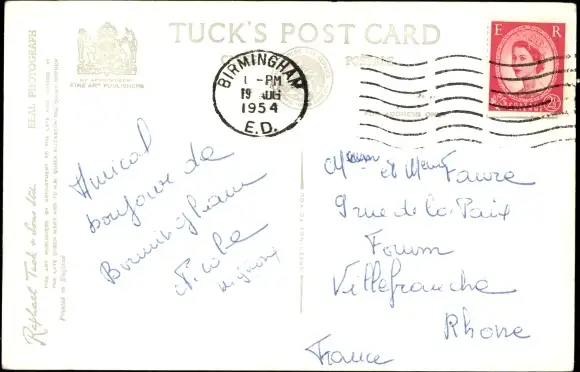 TUCK'S POST CARD
BY APPOINTMENT
FINE ART PUBLISHERS
REAL PHOTOGRAPH
Raphael Tuck & Sons Ltd
Printed in England
GREETINGS TO YOU
BIRMINGHAM
1 - PM
19 AUG
1954
E.D.
E R
Amical
bonjour de
Birmingham
Nicole
et Faure
9 rue de la Paix
Villefranche
Rhone
France